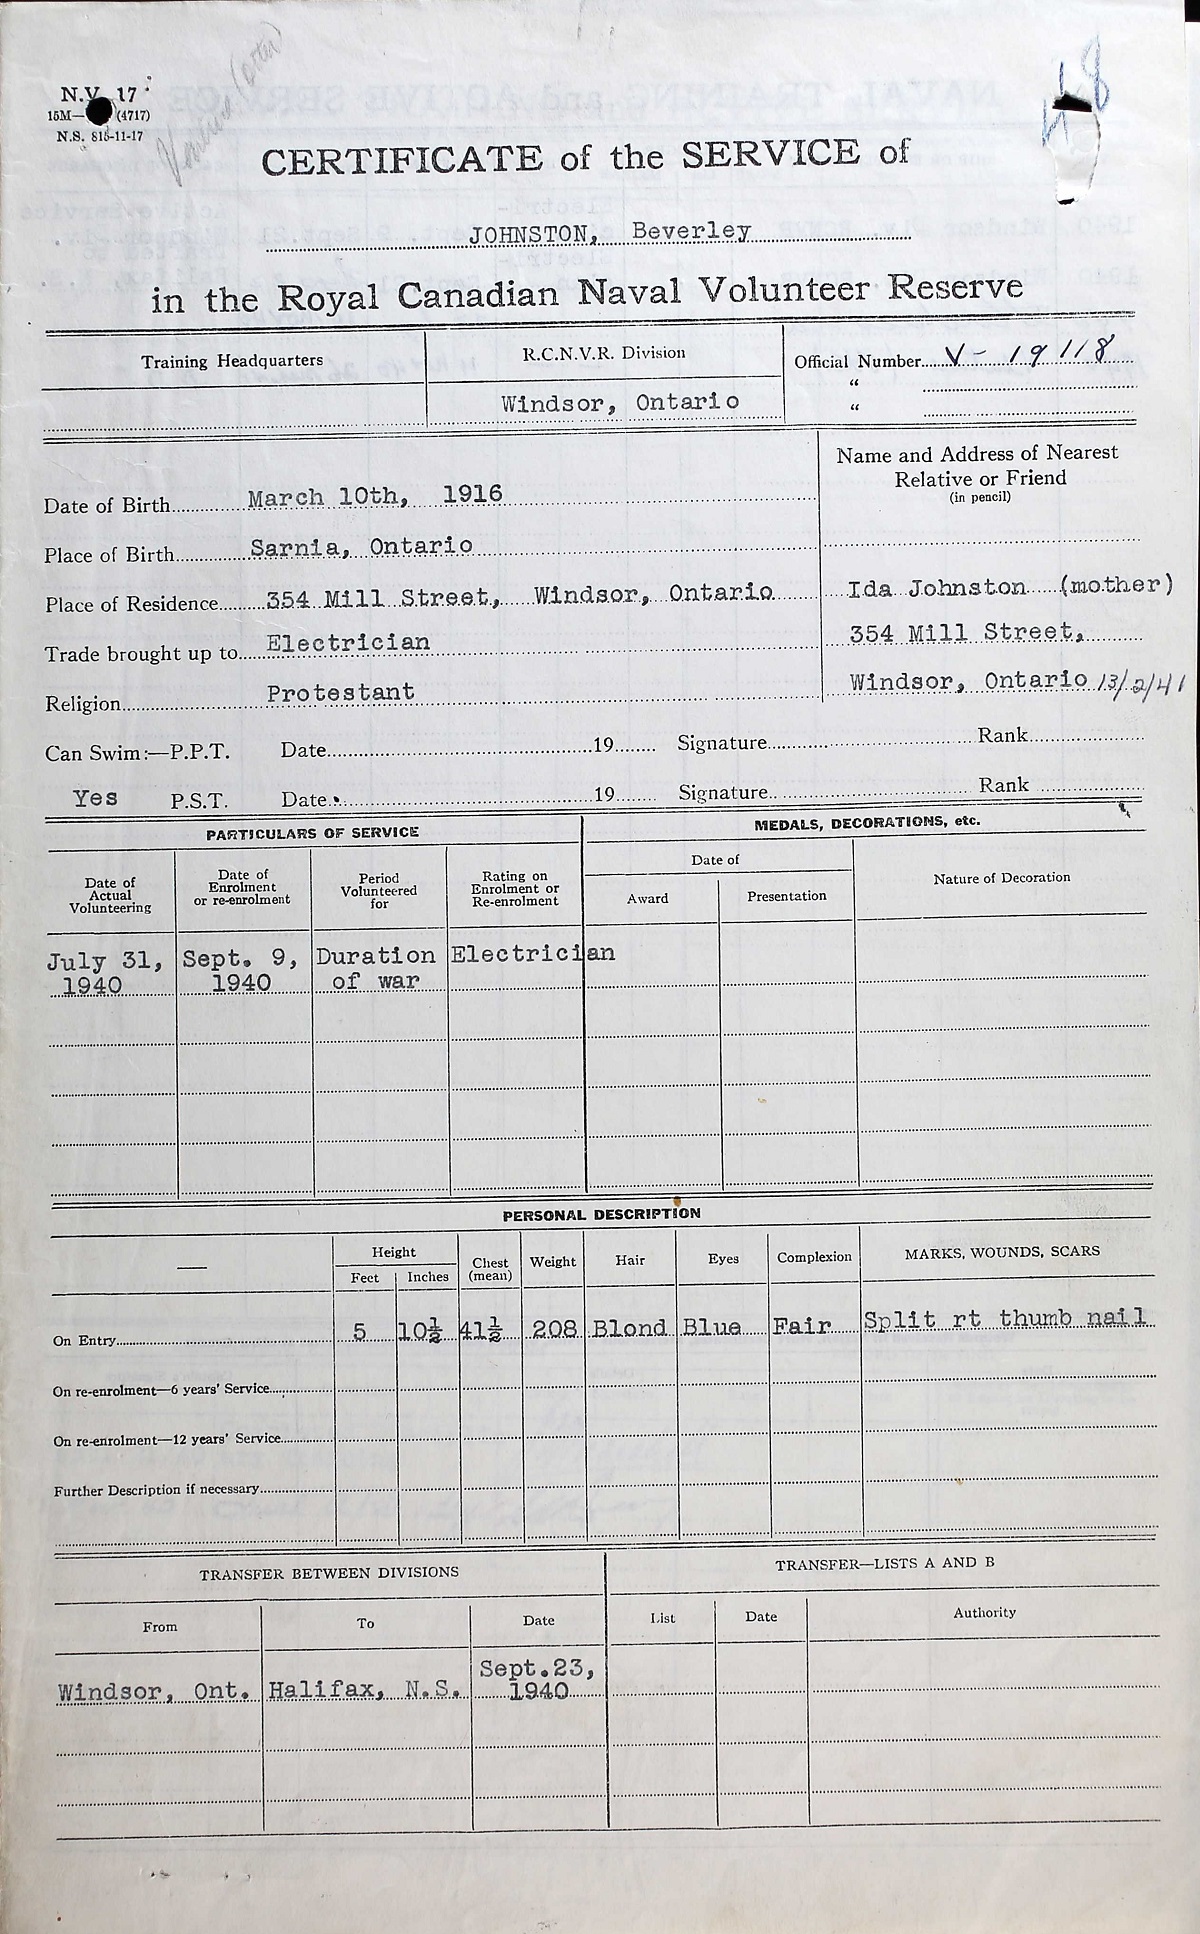 N.V. 17
15M— (4717)
N.S. 815-11-17
48
CERTIFICATE of the SERVICE of
JOHNSTON, Beverley
in the Royal Canadian Naval Volunteer Reserve
Training Headquarters
R.C.N.V.R. Division
Windsor, Ontario
Official Number V- 19118
“
“
Name and Address of Nearest
Relative or Friend
(in pencil)
Date of Birth March 10th, 1916
Place of Birth Sarnia, Ontario
Place of Residence 354 Mill Street, Windsor, Ontario
Ida Johnston (mother)
Trade brought up to Electrician
354 Mill Street,
Religion Protestant
Windsor, Ontario 13/2/41
Can Swim:—P.P.T. Date 19 Signature Rank
Yes P.S.T. Date 19 Signature Rank
PARTICULARS OF SERVICE
MEDALS, DECORATIONS, etc.
Date of
Actual
Volunteering
Date of
Enrolment
or re-enrolment
Period
Volunteered
for
Rating on
Enrolment or
Re-enrolment
Date of
Award
Presentation
Nature of Decoration
July 31, Sept. 9, Duration Electrician
1940 1940 of war
PERSONAL DESCRIPTION
—
Height
Feet
Inches
Chest
(mean)
Weight
Hair
Eyes
Complexion
MARKS, WOUNDS, SCARS
On Entry 5 10½ 41½ 208 Blond Blue Fair Split rt thumb nail
On re-enrolment—6 years' Service
On re-enrolment—12 years' Service
Further Description if necessary
TRANSFER BETWEEN DIVISIONS
TRANSFER—LISTS A AND B
From
To
Date
List
Date
Authority
Windsor, Ont. Halifax, N.S. Sept.23,
1940